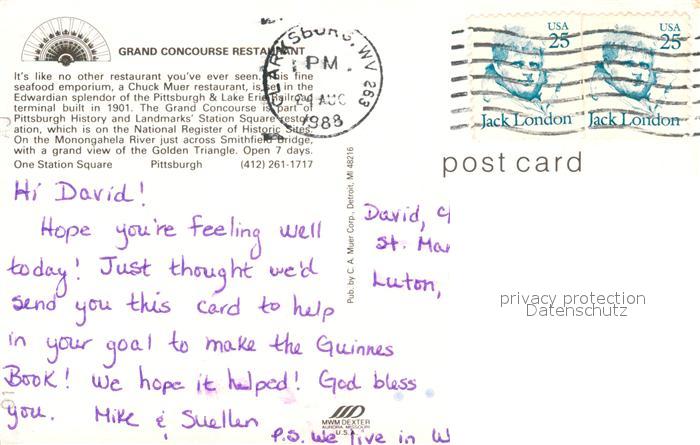 GRAND CONCOURSE RESTAURANT
It's like no other restaurant you've ever seen. This fine
seafood emporium, a Chuck Muer restaurant, is set in the
Edwardian splendor of the Pittsburgh & Lake Erie Railroad
terminal built in 1901. The Grand Concourse is part of
Pittsburgh History and Landmarks' Station Square restor-
ation, which is on the National Register of Historic Sites.
On the Monongahela River just across Smithfield Bridge,
with a grand view of the Golden Triangle. Open 7 days.
One Station Square Pittsburgh (412) 261-1717
CLARKSBURG, WV 263
PM
AUG
1988
USA
25
Jack London
USA
25
Jack London
post card
Hi David!
Hope you're feeling well
today! Just thought we'd
send you this card to help
in your goal to make the Guinnes
Book! We hope it helped! God bless
you. Mike & Suellen
P.S. We live in W
Pub. by C. A. Muer Corp., Detroit, MI 48216
David, c/
St. Mar
Luton,
privacy protection
Datenschutz
MWM DEXTER
AURORA, MISSOURI
U.S.A.